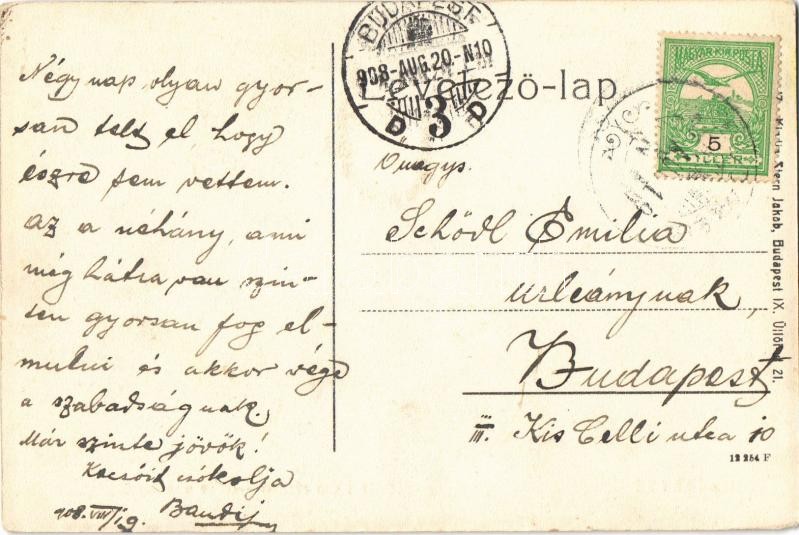 Négy nap olyan gyor-
san telt el, hogy
észre sem vettem.
Az a néhány, ami
még hátra van szin-
tén gyorsan fog el-
mulni és akkor vége
a szabadságnak.
Már szinte jövök!
Kacsóit csókolja
Bandi
908. VIII/19.
BUDAPEST
908-AUG.20.-N10
D 3 P
Levelező-lap
MAGYAR KIR. POSTA
5
FILLÉR
Önagys.
Schödl Emilia
urleánynak,
Budapest
III. Kis Celli utca 10
Stern Jakab, Budapest IX, Üllői-ut 21.
12 254 F